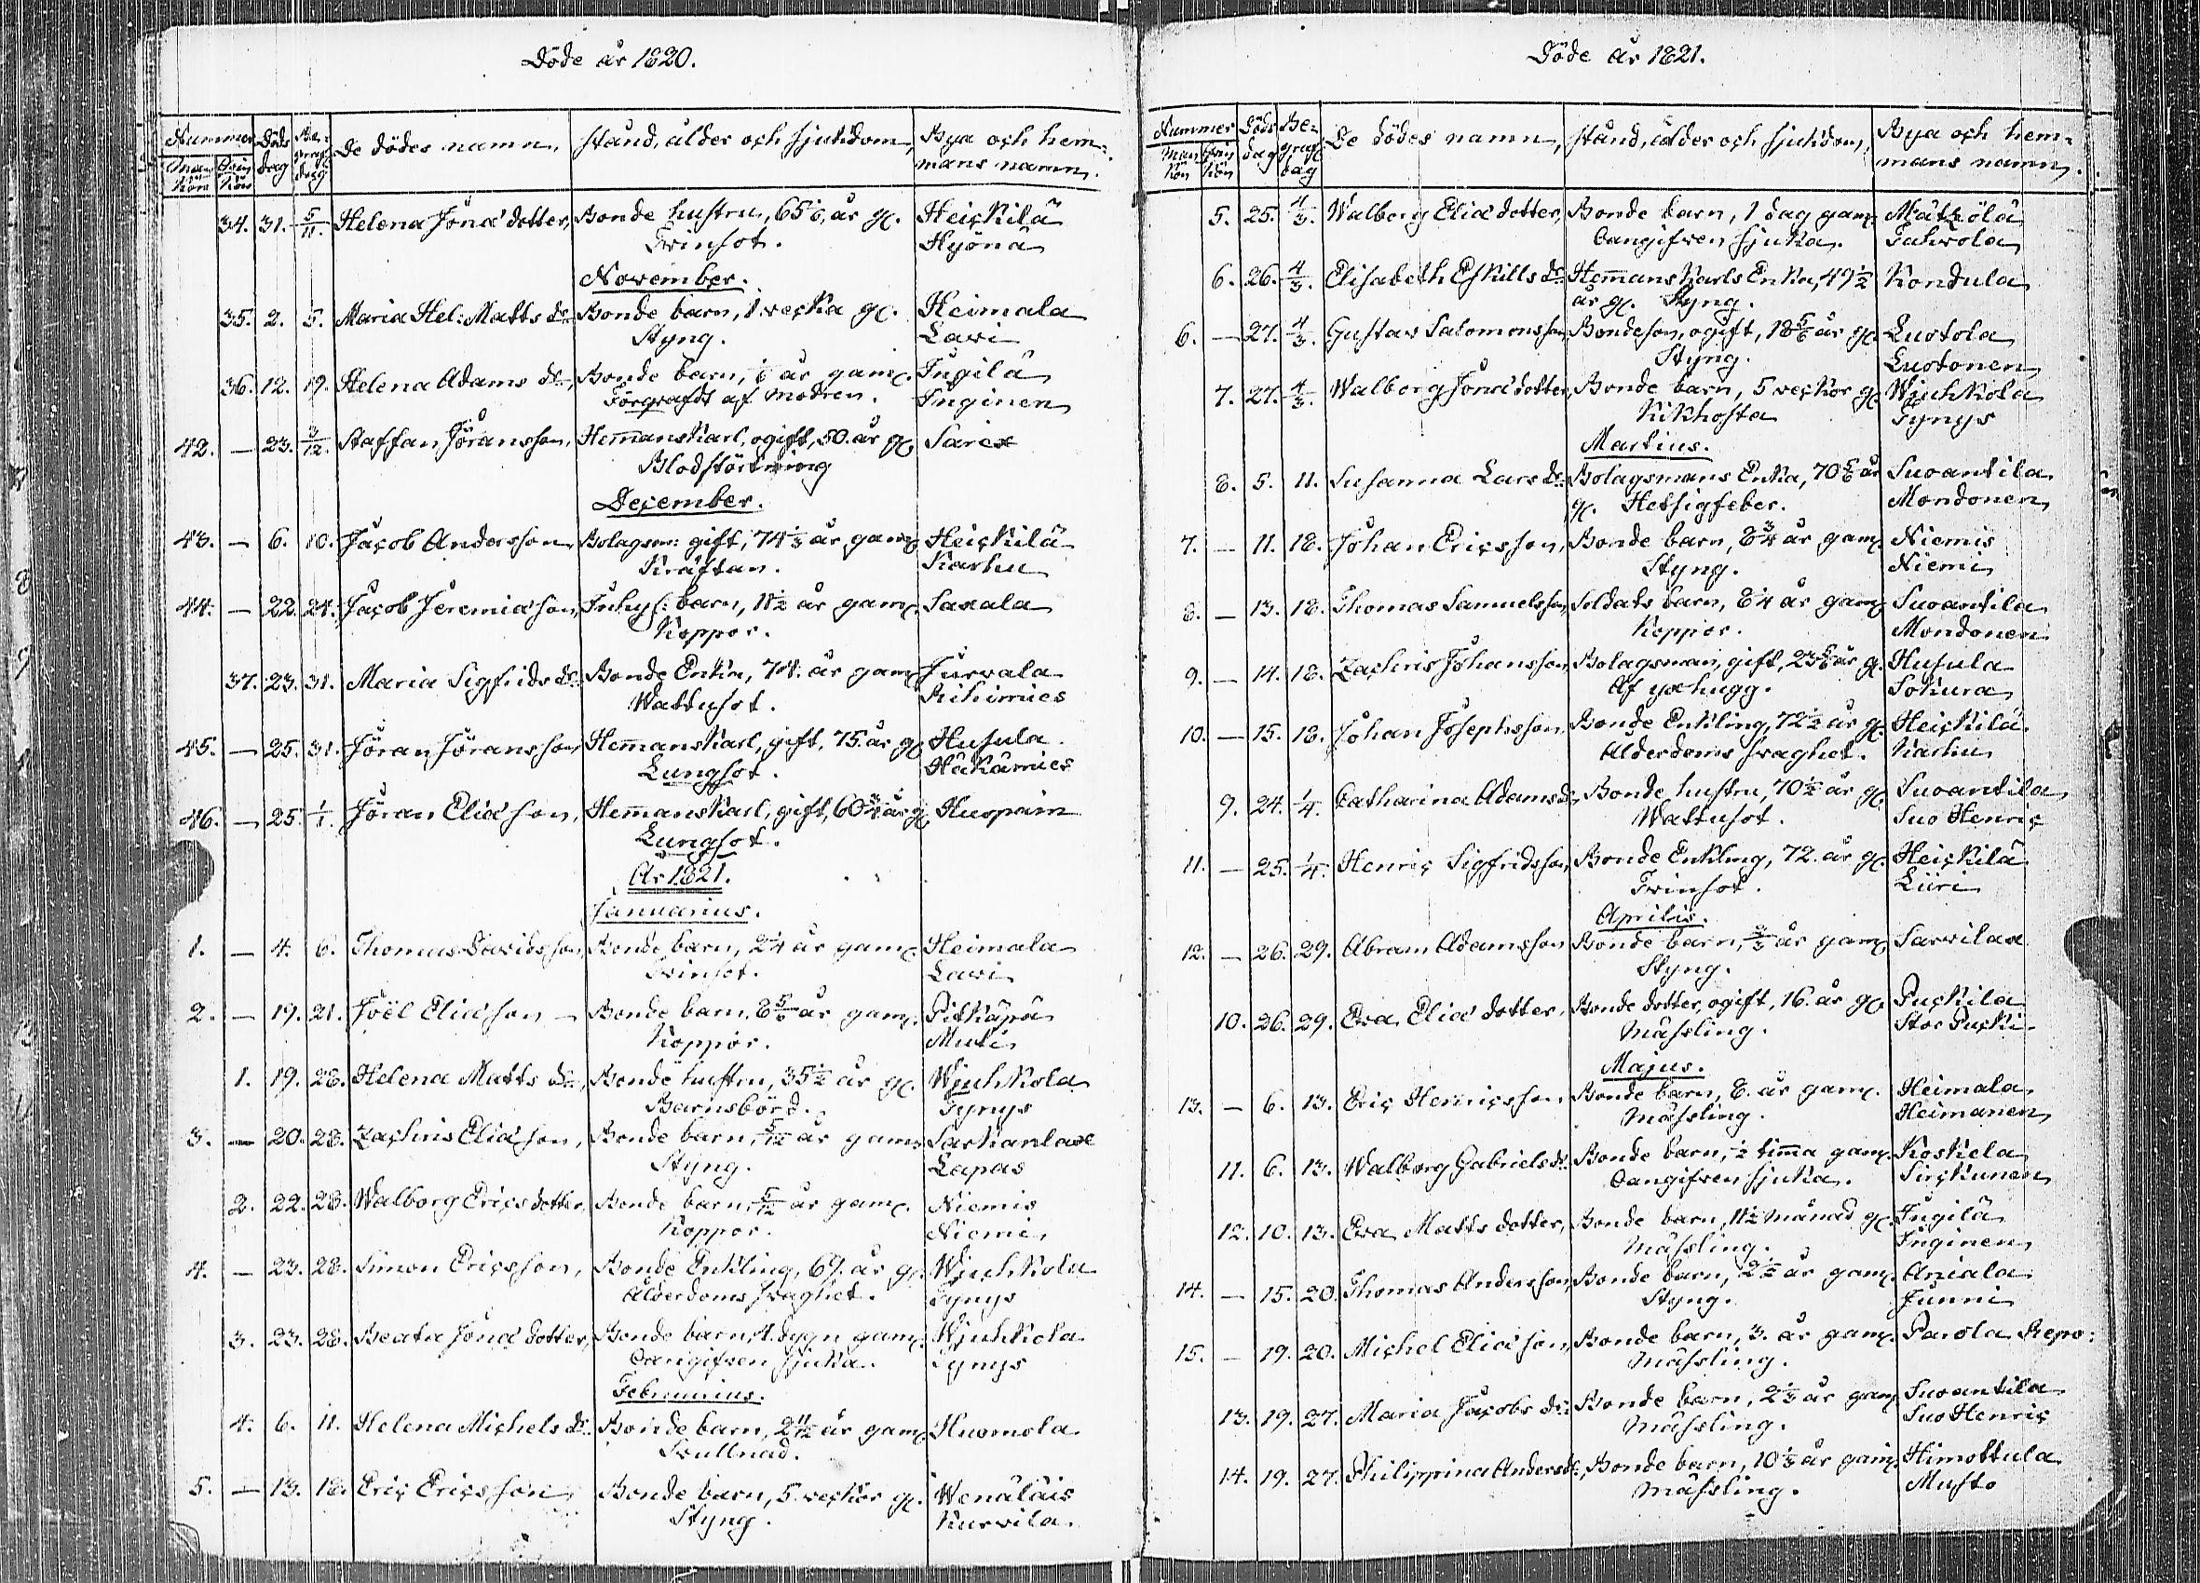 Döde år 1820.
Nummer Döds dag Be- grafn. dag De dödes namn, stånd, ålder och sjukdom, Bya och hem-
Man kön Qvin kön mans namn.
34. 31. 5/11. Helena Jönä dotter, Bonde hustru, 65 1/6 år gl. Heickilä
Tvinsot. Hyönä
November.
35. 2. 5. Maria Hel: Matts dr Bonde barn, 1 vecka gl. Heimala
Styng. Lavi
36. 12. 19. Helena Adams dr, Bonde barn, 1/6 år gam. Ingilä
Förqvafdt af modren. Inginen
42. — 23. 3/12. Staffan Jöransson, Hemmanskarl, ogift, 50. år gl. Sarex
Blodstörtning
December.
43. — 6. 10. Jacob Andersson, Bolagsm: gift, 74 1/3 år gam. Heickilä
Kräftan. Karhu
44. — 22. 24. Jacob Jeremiæson, Inhys: barn, 1 1/2 år gam. Saxala
Koppor.
37. 23. 31. Maria Sigfrids dr Bonde Enka, 74. år gam. Jurvala
Wattusot. Rihimies
45. — 25. 31. Jöran Jöransson Hemmanskarl, gift, 75. år gl. Husula
Lungsot. Häkämies
46. — 25. 1/1. Jöran Eliæson, Hemmanskarl, gift, 60 3/4 år gl. Huopain
Lungsot.
År 1821.
Januarius.
1. — 4. 6. Thomas Davidsson, Bonde barn, 2 1/4 år gam. Heimala
Tvinsot. Lavi
2. — 19. 21. Joël Eliæson — Bonde barn, 8 5/6 år gam. Pitkäpä
Koppor. Muti
1. 19. 28. Helena Matts dr, Bonde hustru, 35 1/2 år gl. Wjuhkola
Barnsbörd. Tynys
3. — 20. 28. Zachris Eliæson, Bonde barn, 5/12 år gam. Sarkanlax
Styng. Lapas
2. 22. 28. Walborg Ericsdotter, Bonde barn, 5/12 år gam. Niemis
Koppor. Niemi
4. — 23. 28. Simon Ericsson, Bonde Enkling, 69. år gl. Wjuhkola
Ålderdoms svaghet. Tynys
3. 23. 28. Beata Jonæ dotter, Bonde barn, 1. dygn gam. Wjuhkola
Oangifven sjuka. Tynys
Februarius.
4. 6. 11. Helena Michels dr. Bonde barn, 2 11/12 år gam. Huomola
Svullnad.
5. — 13. 18. Eric Ericsson Bonde barn, 5. veckor gl. Wenäläis
Styng. Kurvila.
Döde år 1821.
Nummer Döds dag Be- grafn. dag De dödes namn, stånd, ålder och sjukdom, Bya och hem-
Man kön Qvin kön mans namn.
5. 25. 4/3. Walborg Eliæ dotter, Bonde barn, 1 dag gam. Mätkölä
Oangifven sjuka. Tahvola
6. 26. 4/3. Elisabeth Eskills dr Hemmanskarls Enka, 49 1/2 Kondula
år gl. Styng.
6. — 27. 4/3. Gustav Salomonsson, Bondeson, ogift, 18 5/6 år gl. Luotola
Styng. Luotonen
7. 27. 4/3. Walborg Jonæ dotter, Bonde barn, 5 veckor gl. Wjuhkola
Kikhosta Tynys
Martius.
8. 5. 11. Susanna Lars dr Bolagsmans Enka, 70 5/6 år Suoantila
gl. Hetsigfeber. Mondonen
7. — 11. 18. Johan Ericsson, Bonde barn, 8 3/4 år gam. Niemis
Styng. Niemi
8. — 13. 18. Thomas Samuelsson, Soldats barn, 8 1/4 år gam. Suoantila
Koppor. Mondonen
9. — 14. 18. Zachris Johansson, Bolagsman, gift, 23 5/6 år g. Husula
Af yxhugg. Sokura
10. — 15. 18. Johan Josephsson, Bonde Enkling, 72 1/2 år gl. Heickilä
Ålderdoms svaghet. Karhu
9. 24. 1/4. Catharina Adams dr, Bonde hustru, 70 1/2 år gl. Suoantila
Wattusot. Suo Henric
11. — 25. 1/4. Henric Sigfridsson, Bonde Enkling, 72. år gl. Heickilä
Tvinsot. Liiri
Aprilis.
12. — 26. 29. Abram Adamsson Bonde barn, 2/3 år gam. Sarvilax
Styng.
10. 26. 29. Eva Eliæ dotter, Bonde dotter, ogift, 16. år gl. Puckila
Mässling. Stor Pucki
Majus.
13. — 6. 13. Eric Henricsson Bonde barn, 8. år gam. Heimala
Mässling. Heimanen
11. 6. 13. Walborg Gabriels dr. Bonde barn, 1/2 timma gam. Koskela
Oangifven sjuka. Sirckunen
12. 10. 13. Eva Matts dotter, Bonde barn, 11 1/2 månad gl. Ingilä
Mässling. Inginen
14. — 15. 20. Thomas Andersson, Bonde barn, 2 1/2 år gam. Aniala
Styng. Junni
15. — 19. 20. Michel Eliæson, Bonde barn, 3. år gam. Parola Repo:
Mässling.
13. 19. 27. Maria Jacobs dr: Bonde barn, 2 1/3 år gam. Suoantila
Mässling. Suo Henric
14. 19. 27. Philippina Anders dr:, Bonde barn, 10 1/3 år gam. Himottula
Mässling. Musto